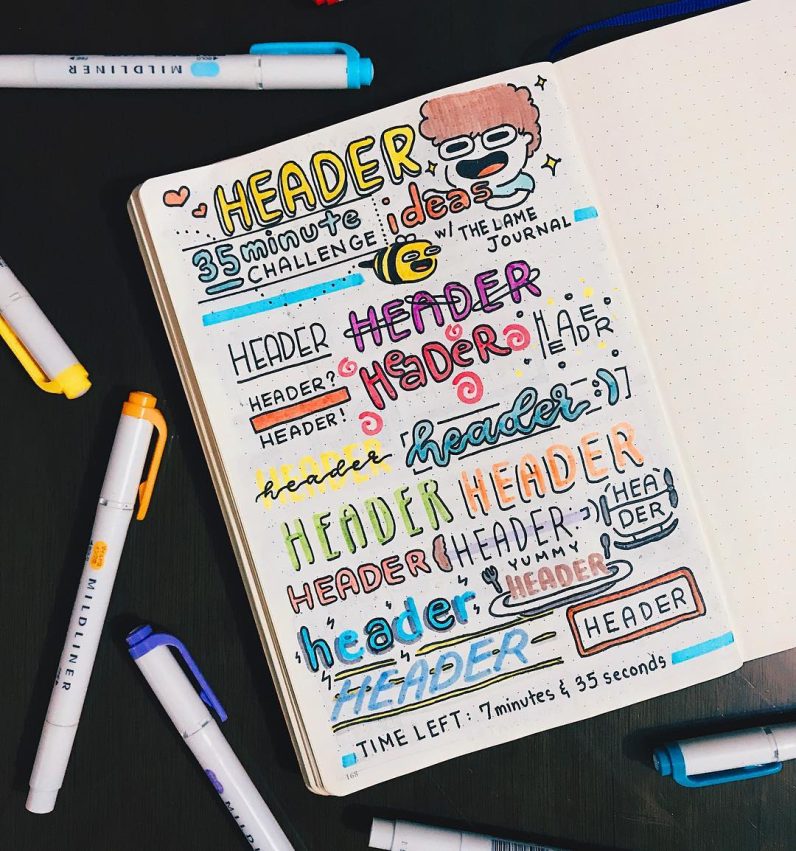 MILDLINER
HEADER
ideas
35 minute
CHALLENGE
w/ THE LAME
JOURNAL
HEADER
HEADER
HEADER?
HEADER!
HeaDER
HEADER
header
HEADER
header :)
HEADER
HEADER
HEADER
HEADER
HEA
DER
YUMMY
HEADER
header
HEADER
HEADER
TIME LEFT: 7 minutes & 35 seconds
168
MILDLINER
MILDLINER